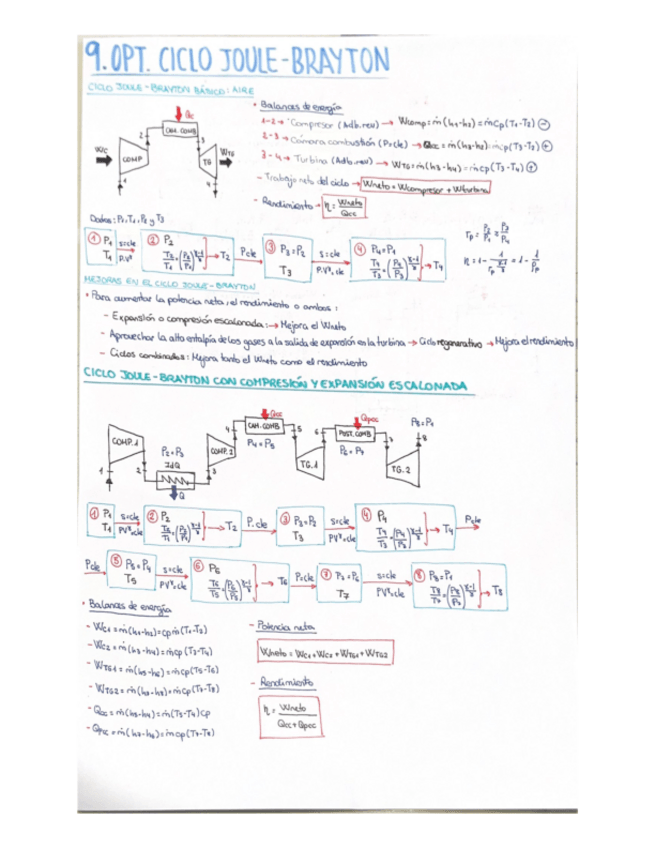 9. OPT. CICLO JOULE-BRAYTON
CICLO JOULE-BRAYTON BÁSICO: AIRE
• Balances de energía
1-2 → Compresor (Adb. rev) → Wcomp = ṁ(h1-h2) = ṁCp(T1-T2) ⊖
2-3 → Cámara combustión (P=cte) → Qcc = ṁ(h3-h2) = ṁcp(T3-T2) ⊕
3-4 → Turbina (Adb. rev) → WTG = ṁ(h3-h4) = ṁcp(T3-T4) ⊕
- Trabajo neto del ciclo → Wneto = Wcompresor + Wturbina
- Rendimiento → η = Wneto / Qcc
Qcc
CAM. COMB
Wc
COMP
TG
WTG
1
2
3
4
Datos: P1, T1, P2 y T3
① P1 T1
s=cte
② P2 T2/T1 = (P2/P1)^γ-1/γ → T2
P.cte
③ P3=P2 T3
s=cte
P.Vᵞ=cte
④ P4=P1 T4/T3 = (P4/P3)^γ-1/γ → T4
MEJORAS EN EL CICLO JOULE-BRAYTON
• Para aumentar la potencia neta, el rendimiento o ambos:
- Expansión o compresión escalonada: → Mejora el Wneto
- Aprovechar la alta entalpía de los gases a la salida de expansión en la turbina → Ciclo regenerativo → Mejora el rendimiento
- Ciclos combinados: Mejora tanto el Wneto como el rendimiento
CICLO JOULE-BRAYTON CON COMPRESIÓN Y EXPANSIÓN ESCALONADA
Qcc
Qpcc
CAM. COMB
POST. COMB
P8=P1
COMP. 1
COMP. 2
P4=P5
P6=P7
P2=P3
TG.1
TG.2
Q
① P1 T1
s=cte
PVᵞ=cte
② P2 → T2
P.cte
③ P3=P2 T3
s=cte
PVᵞ=cte
④ P4 T4/T3 = (P4/P3)^γ-1/γ → T4
P.cte
P.cte
⑤ P5=P4 T5
s=cte
PVᵞ=cte
⑥ P6 T6/T5 = (P6/P5)^γ-1/γ → T6
P.cte
⑦ P7=P6 T7
s=cte
PVᵞ=cte
⑧ P8=P1 T8/T7 = (P8/P7)^γ-1/γ → T8
• Balances de energía
- WC1 = ṁ(h1-h2) = cpṁ(T1-T2)
- WC2 = ṁ(h3-h4) = ṁcp(T3-T4)
- WTG1 = ṁ(h5-h6) = ṁcp(T5-T6)
- WTG2 = ṁ(h7-h8) = ṁcp(T7-T8)
- Qcc = ṁ(h5-h4) = ṁ(T5-T4)cp
- Qpcc = ṁ(h7-h6) = ṁcp(T7-T6)
- Potencia neta
Wneto = WC1 + WC2 + WTG1 + WTG2
- Rendimiento
η = Wneto / Qcc + Qpcc